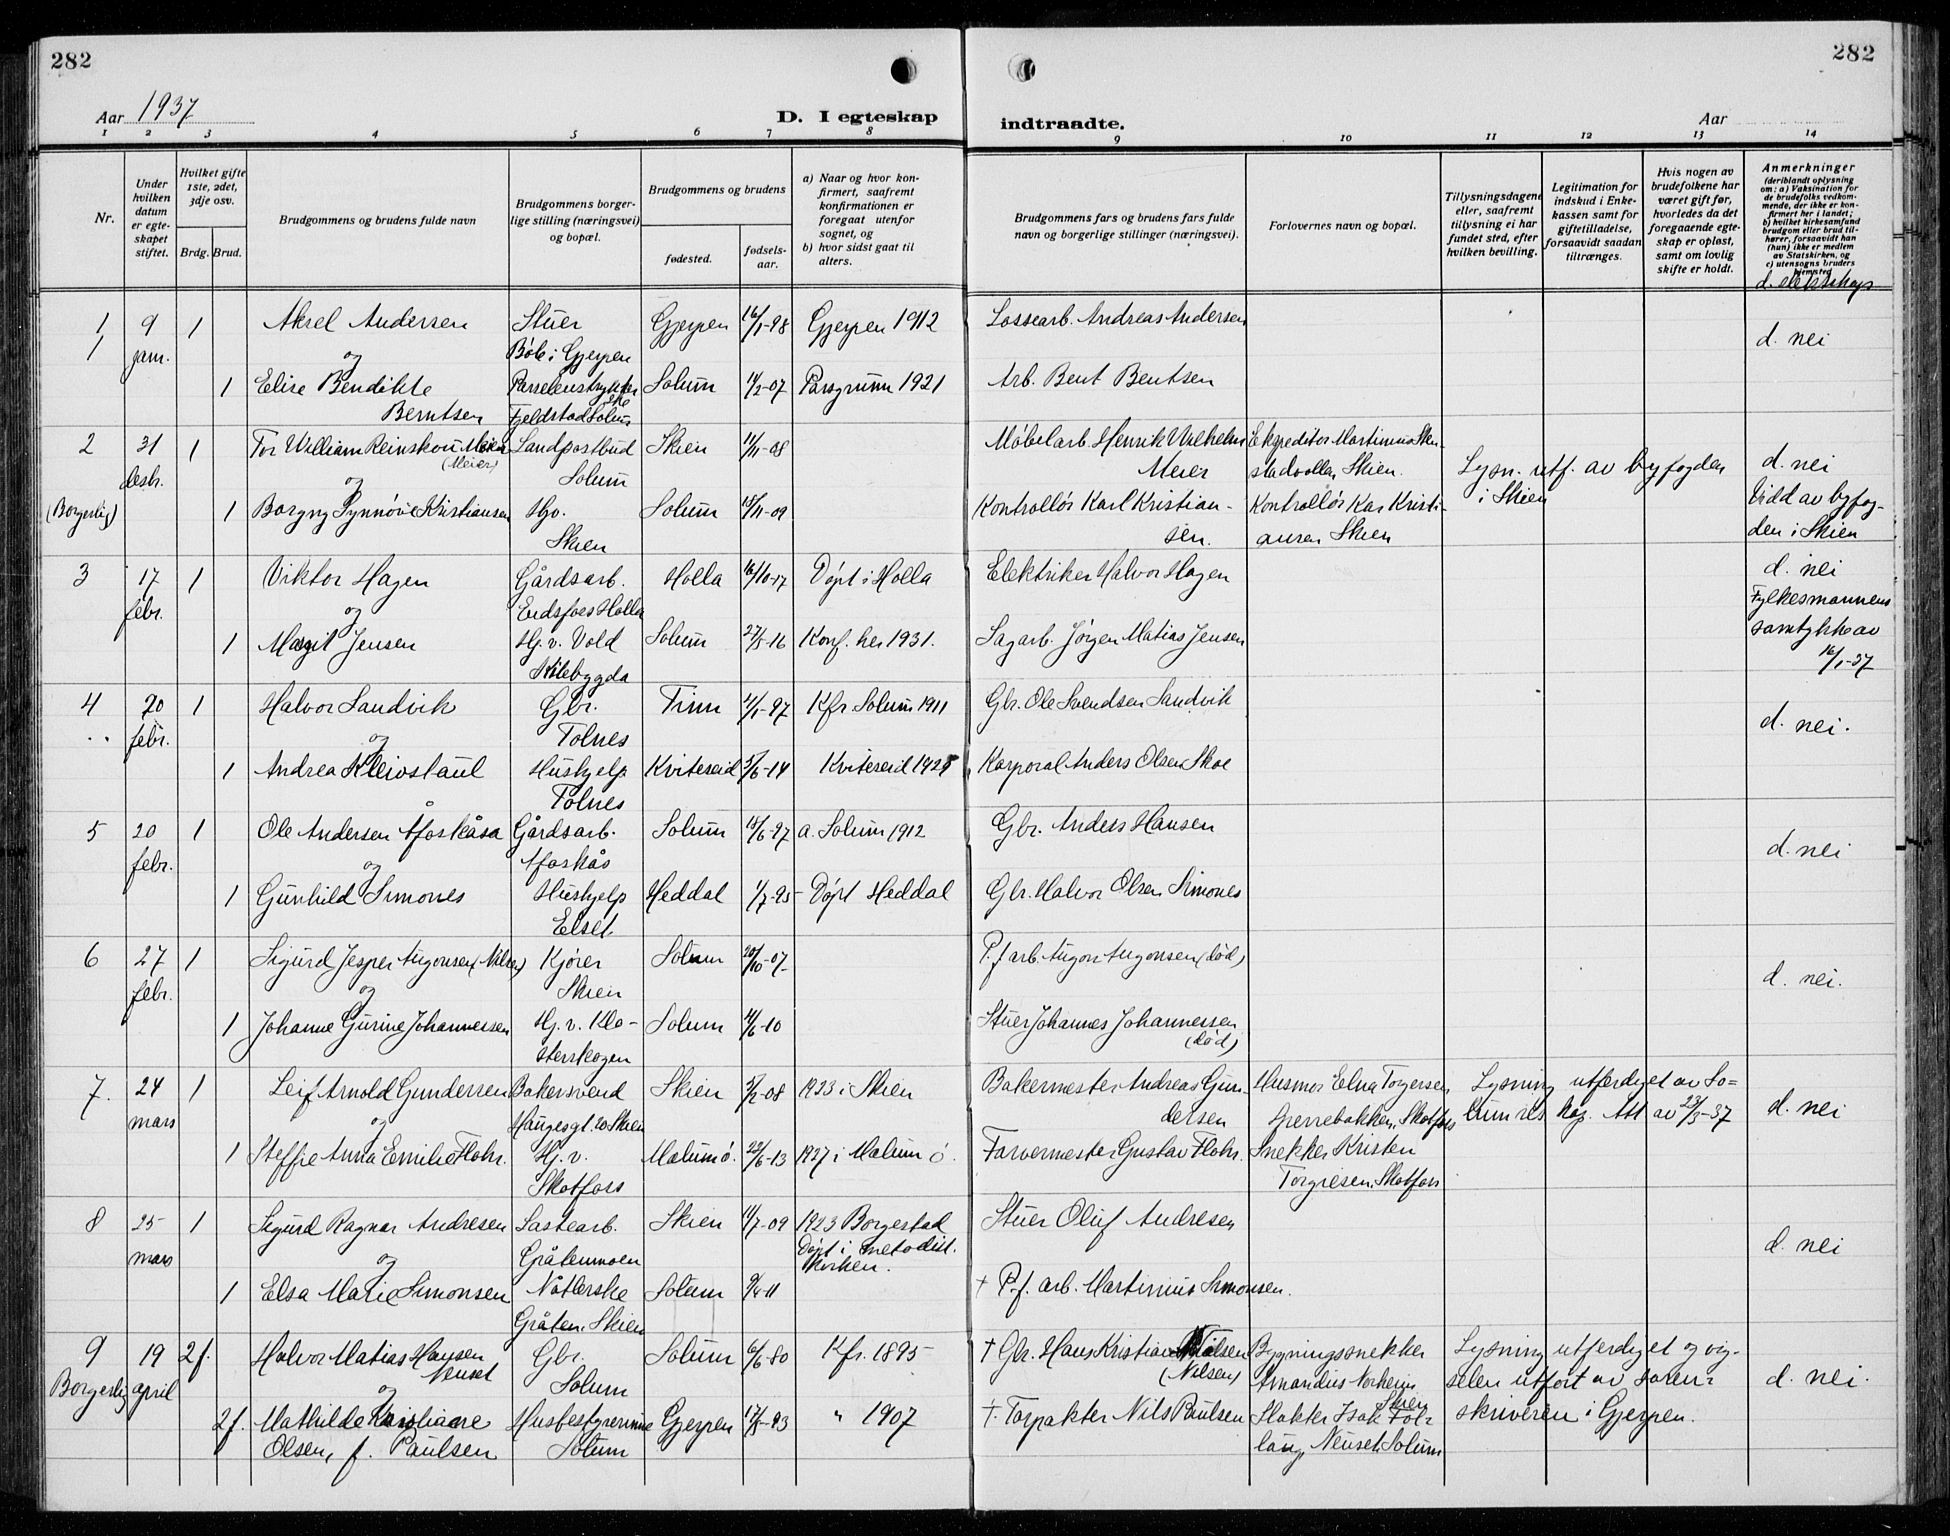 282
282
Aar 1937
D. I egteskap
indtraadte.
Aar
1 2 3 4 5 6 7 8 9 10 11 12 13 14
Nr.
Under hvilken datum er egteskapet stiftet.
Hvilket gifte 1ste, 2det, 3dje osv.
Brdg. Brud.
Brudgommens og brudens fulde navn
Brudgommens borgerlige stilling (næringsvei) og bopæl.
Brudgommens og brudens
fødested.
fødselsaar.
a) Naar og hvor konfirmert, saafremt konfirmationen er foregaat utenfor sognet, og
b) hvor sidst gaat til alters.
Brudgommens fars og brudens fars fulde navn og borgerlige stillinger (næringsvei).
Forlovernes navn og bopæl.
Tillysningsdagene eller, saafremt tillysning ei har fundet sted, efter hvilken bevilling.
Legitimation for indskud i Enkekassen samt for giftetilladelse, forsaavidt saadan tiltrænges.
Hvis nogen av brudefolkene har været gift før, hvorledes da det foregaaende egteskap er opløst, samt om lovlig skifte er holdt.
Anmerkninger
(deriblandt oplysning om: a) Vaksination for de brudefolks vedkommende, der ikke er konfirmert her i landet; b) hvilket kirkesamfund brudgom eller brud tilhører, forsaavidt han (hun) ikke er medlem av Statskirken, og c) utensogns bruders hjemsted
1 9 1 Aksel Andersen Stuer Gjerpen 16/1-98 Gjerpen 1912 Lossearb. Andreas Andersen
1 jan. og Bøle i Gjerpen d. nei
1 Elise Bendikte Solum 14/2-07 Porsgrunn 1921 Arb. Bent Bentsen
Berntsen Fjeldstad Solum
2 31 1 Tor William Reinskou Meier Landpostbud Skien 11/11-08 Møbelarb. Henrik Vilhelm
(Meier) Solum Meier Skien. Lysn. utf. av byfogden d. nei
desbr. og i Skien
(Borgerlig) 1 Borgny Synnøve Kristiansen Hjv. Solum 15/11-09 Kontrollør Karl Kristian- Kontrollør Kar Kristi- Vidd av byfog-
Skien sen. ansen Skien den i Skien
3 17 1 Viktor Hagen Gårdsarb. Holla 16/10-17 Døpt i Holla Elektriker Halvor Hagen d. nei
febr. og Eidsfoss Holla Fylkesmannens
1 Margit Jensen Hj. v. Vold Solum 27/5-16 Konf. her 1931. Sagarb. Jørgen Matias Jensen samtykke av
Kilebygda 16/1-37
4 20 1 Halvor Sandvik Gbr. Tinn 4/1-97 Kfr Solum 1911 Gbr. Ole Svendsen Sandvik
.. febr. og Tolnes d. nei.
1 Andrea Kleivstaul Hushjelp Kviteseid 5/6-14 Kviteseid 1928 Korporal Anders Olsen Skoe
Tolnes
5 20 1 Ole Andersen Åfoskåsa Gårdsarb. Solum 15/6-97 a. Solum 1912 Gbr. Anders Hansen
febr. og Åfoskås d. nei
1 Gunhild Simones Hushjelp Heddal 1/7-95 Døpt Heddal Gbr. Halvor Olsen Simones
Elset.
6 27 1 Sigurd Jesper Augonsen (Nilsen) Kjører Solum 20/10-07 P.f arb. Augon Augonsen (død)
febr. og Skien d. nei.
1 Johanne Gurine Johannessen Hj. v. Klo- Solum 4/6-10 Stuer Johannes Johannessen
sterskogen (død)
7. 24 1 Leif Arnold Gundersen Bakersvend Skien 5/2-08 1923 i Skien Bakermester Andreas Gun- Husmor Elna Torgersen Lysning utferdiget av So-
mars og Haugesgt. 20 Skien dersen Sperrebakken, Skotfoss lum res. kap. Att av 23/3-37 d. nei
1 Steffie Anna Emilie Flohr. Hj. v. Mælum ö. 22/6-13 1927 i Mælum ö. Farvermester Gustav Flohr. Snekker Kristen
Skotfoss Torgresen, Skotfoss
8 25 1 Sigurd Ragnar Andresen Lastearb. Skien 11/7-09 1923 Borgestad Stuer Oluf Andresen
mars og Gråtenmoen Døpt i metodist. d. nei
kirken.
1 Elsa Marie Simonsen Nåtlerske Solum 9/4-11 † P.f. arb. Martinius Simonsen.
Gråten, Skien
9 19 2 f. Halvor Matias Hansen Gbr. Solum 6/6-80 Kfr. 1895 † Gbr. Hans Kristian Nilsen Bygningssnekker Lysning utferdiget og vig-
Neuset (Nilsen)
Borgerlig april og Solum Amandus Norheim Skien selen utført av soren- d. nei.
2 f. Mathilde Karoliane Husbestyrerinne Gjerpen 17/5-93 " 1907 †. Torpakter Nils Paulsen Slakter Isak skriveren i Gjerpen.
Olsen, f. Paulsen Solum Neuset, Solum